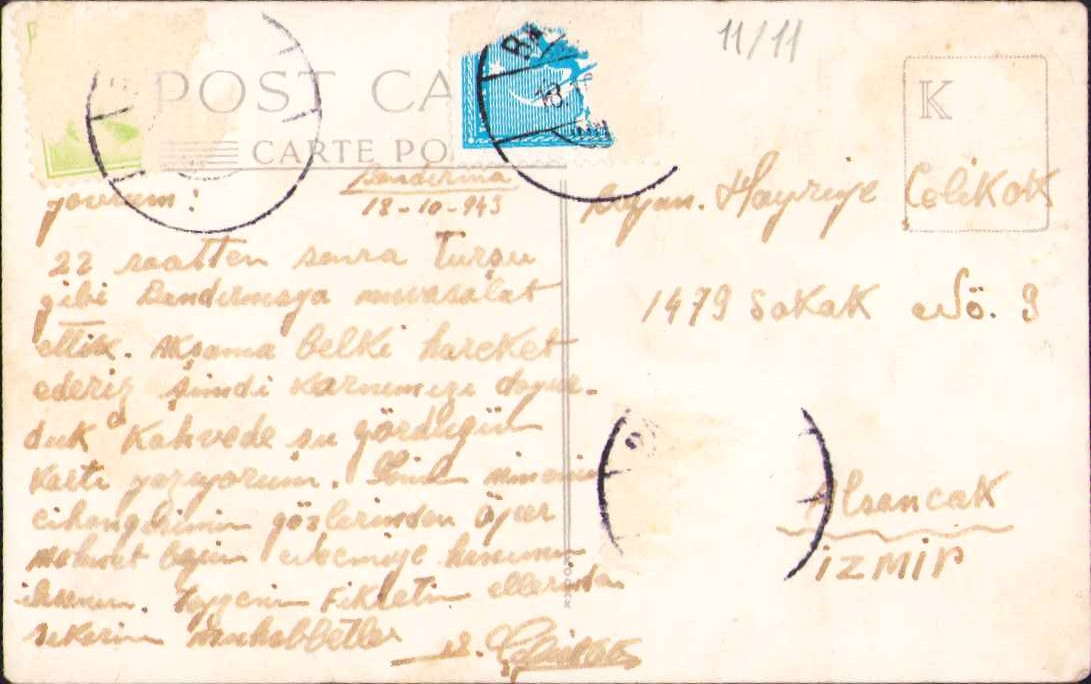 11/11
POST CA
CARTE PO
K
Bandırma
18-10-943
yavrum!
22 saatten sonra Turşu
gibi Bandırmaya muvasalat
ettik. Akşama belki hareket
ederiz şimdi karnımızı doyur-
duk Kahvede şu gördüğün
Kartı yazıyorum. Senin
gözlerinden öper
hanımın
Fikretin ellerinden
muhabbetler
Bayan. Hayriye Çelikok
1479 Sokak No. 9
Alsancak
İZMİR